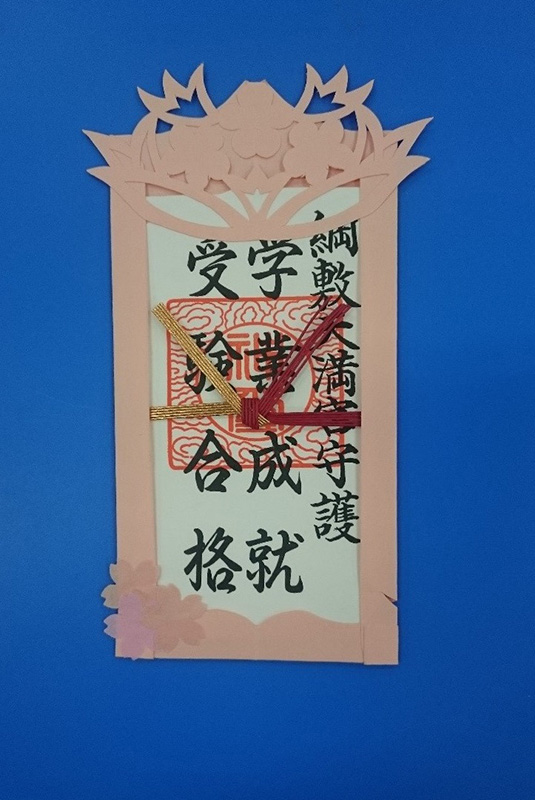 綱敷天満宮守護
学業成就
受験合格